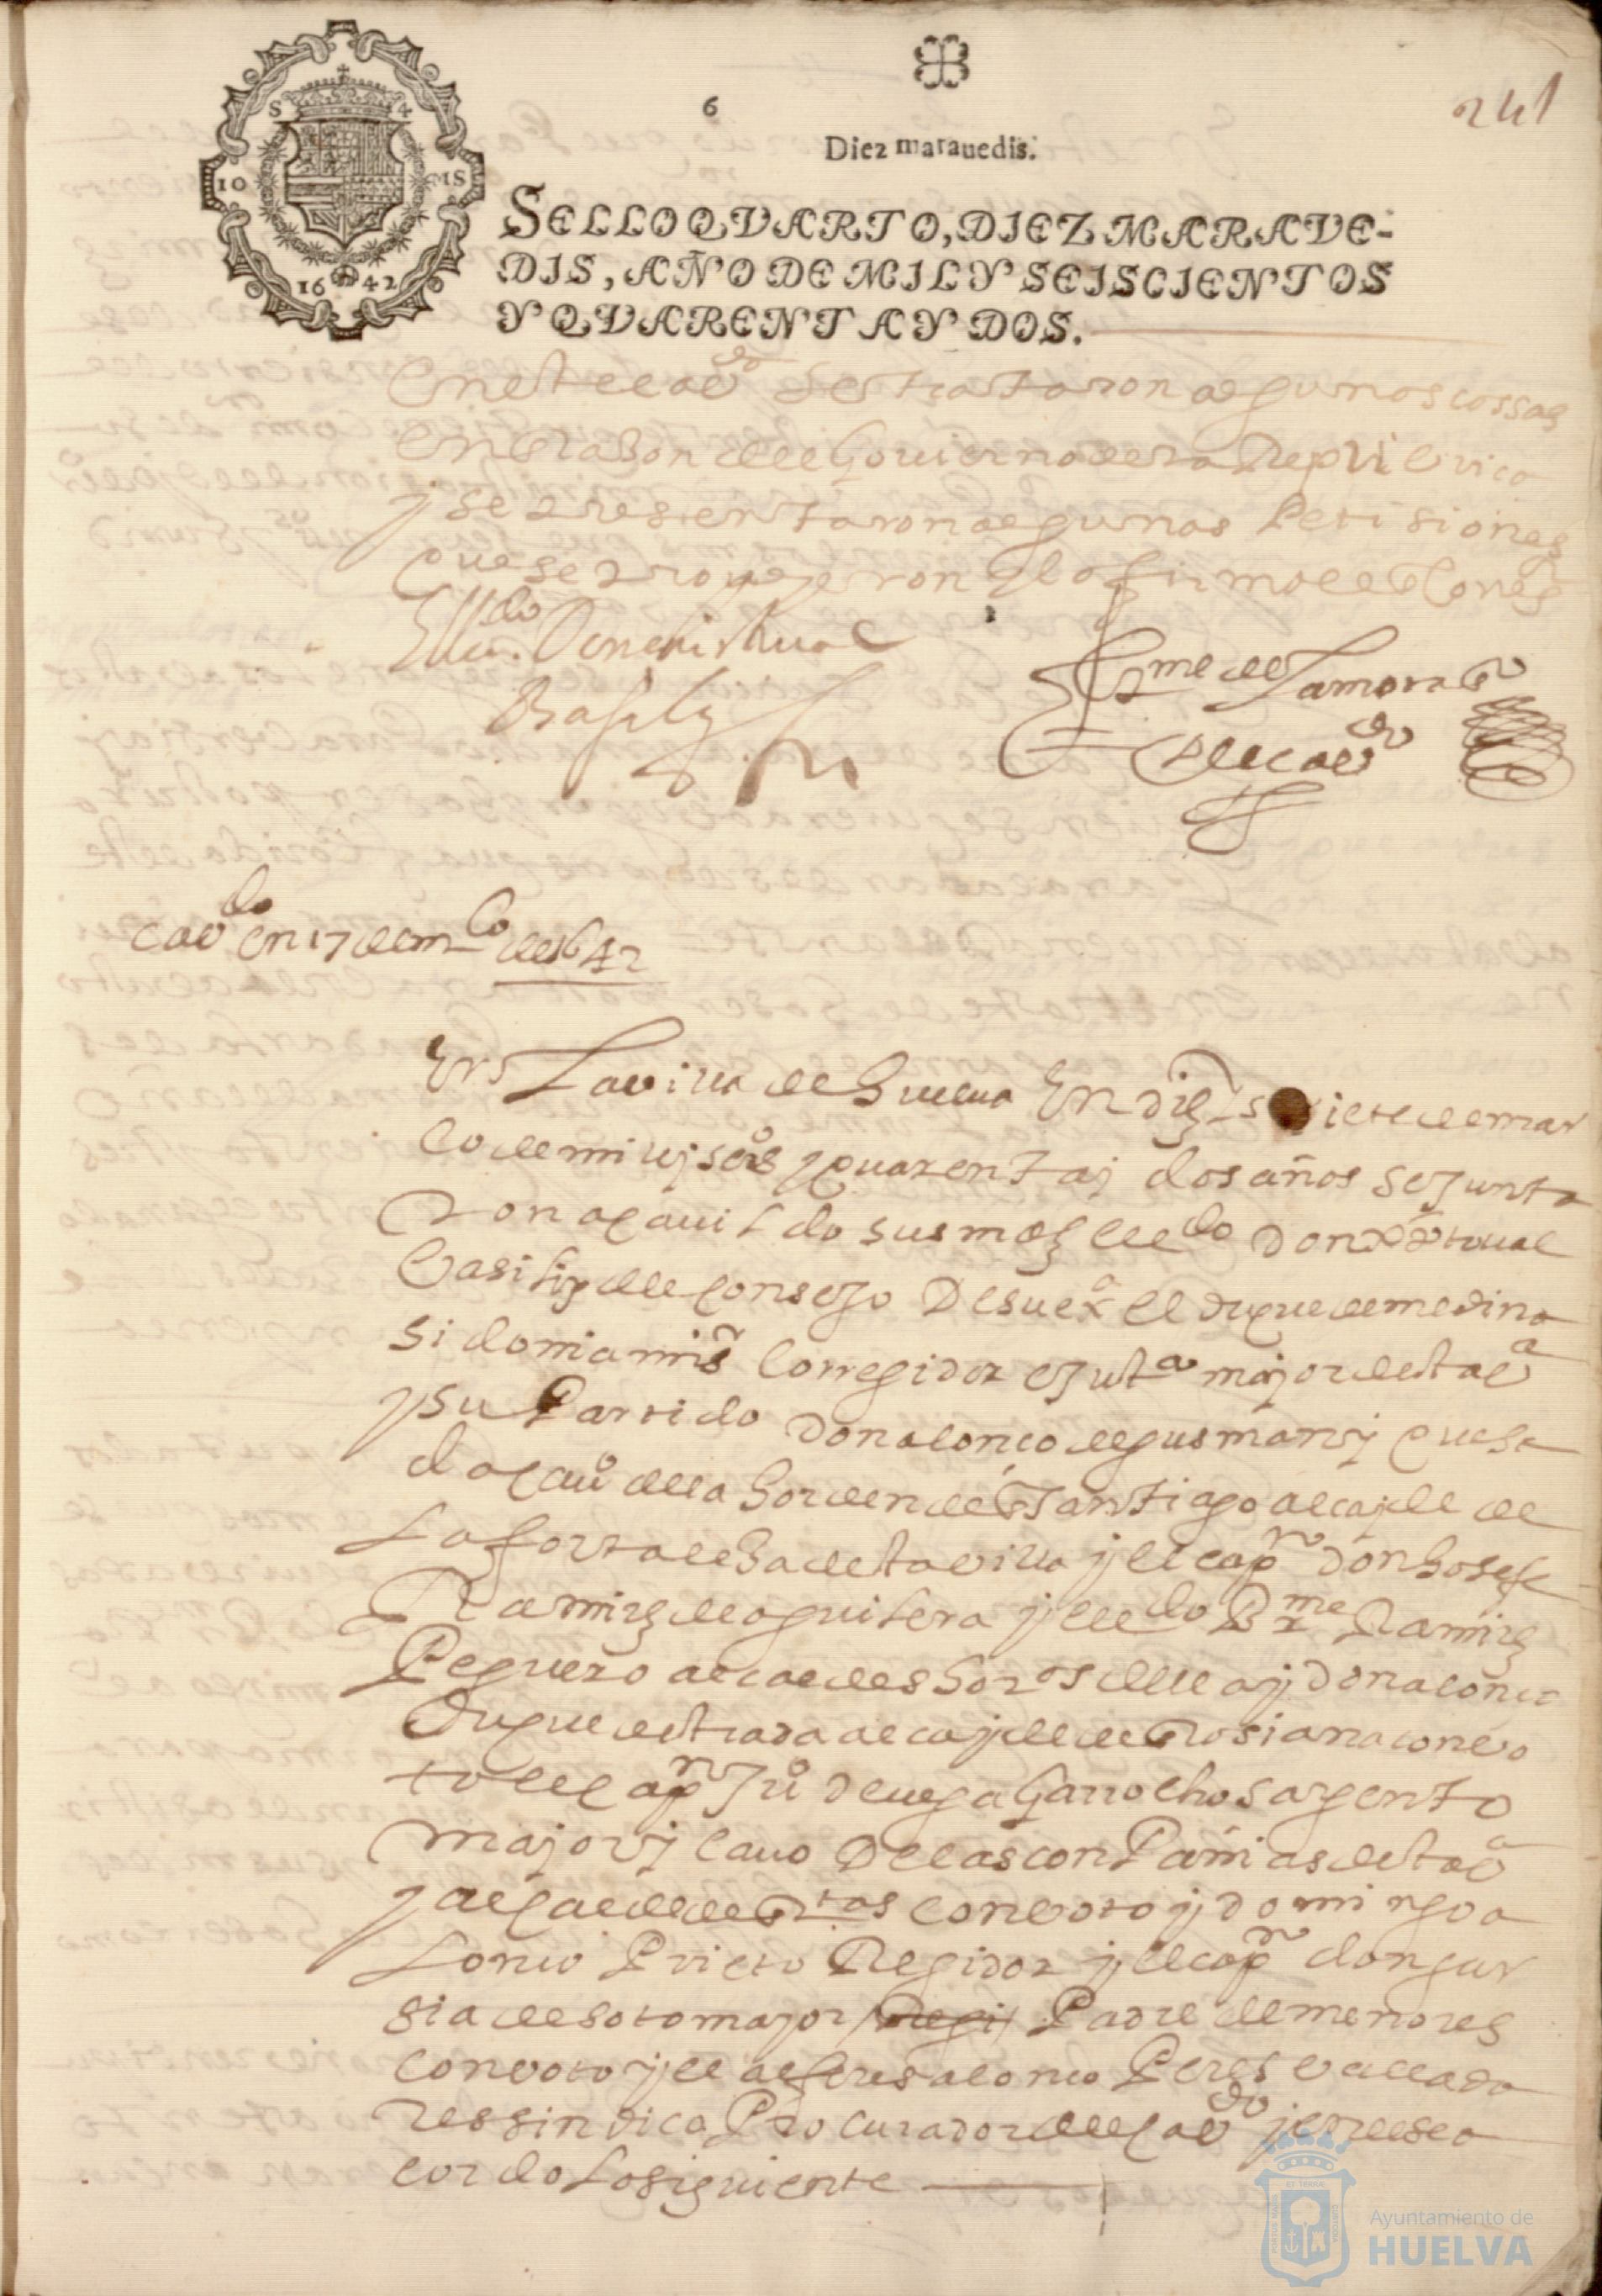 241
6
Diez marauedis.
S 4
10 MS
1642
SELLO QVARTO, DIEZ MARAVE-
DIS, AÑO DE MIL Y SEISCIENTOS
Y QVARENTA Y DOS.
En este cavdo se trataron algunos cossas
en rason del Govierno de la Republica
y se presentaron algunas Petisiones
que se proveyeron y lo firmo el Corres
Ellido Don xristual
Basilis
Bme de Zamora
del cavdo
cavdo en 17 de mco de 1642
En La villa de Huelva En diez siete de mar
co de mil y seis y quarenta y dos años se junta
ron a cauildo sus mds el ldo Don Xptoual
Basilis del Consejo De su exa el duque de medina
Sidonia mi sr Corregidor e justa mayor desta va
y su Partido Don alonco de gusman y quesa
da cauo de la horden de Santiago alcayde de
La fortalesa desta villa y el capn don hosefe
Ramirs de aguilera y el ldo Bme Ramirs
Peguero alcaldes hors della y Don alonco
Duque destrada alcayde de Rosiana con vo
to el capn Ju de uega Garrocho sargento
mayor y cauo De las conpañias desta va
y alcalde de con voto y domingo a
Lonco Prieto Regidor y el capn don gar
sia de sotomayor Regi Padre de menores
con voto y el alferes alonco Peres vallada
res sindico Procurador del cavdo y
cordo Lo siguiente
Ayuntamiento de
HUELVA